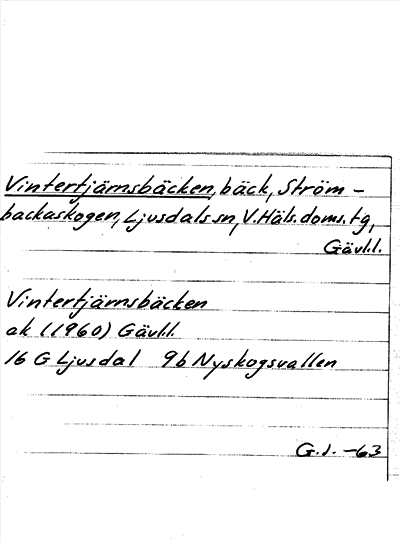 Vintertjärnsbäcken, bäck, Ström-
backaskogen, Ljusdals sn, V. Häls. doms. tg,
Gävl.l.
Vintertjärnsbäcken
ek (1960) Gävl.l.
16 G Ljusdal 9b Nyskogsvallen
G.J. -63